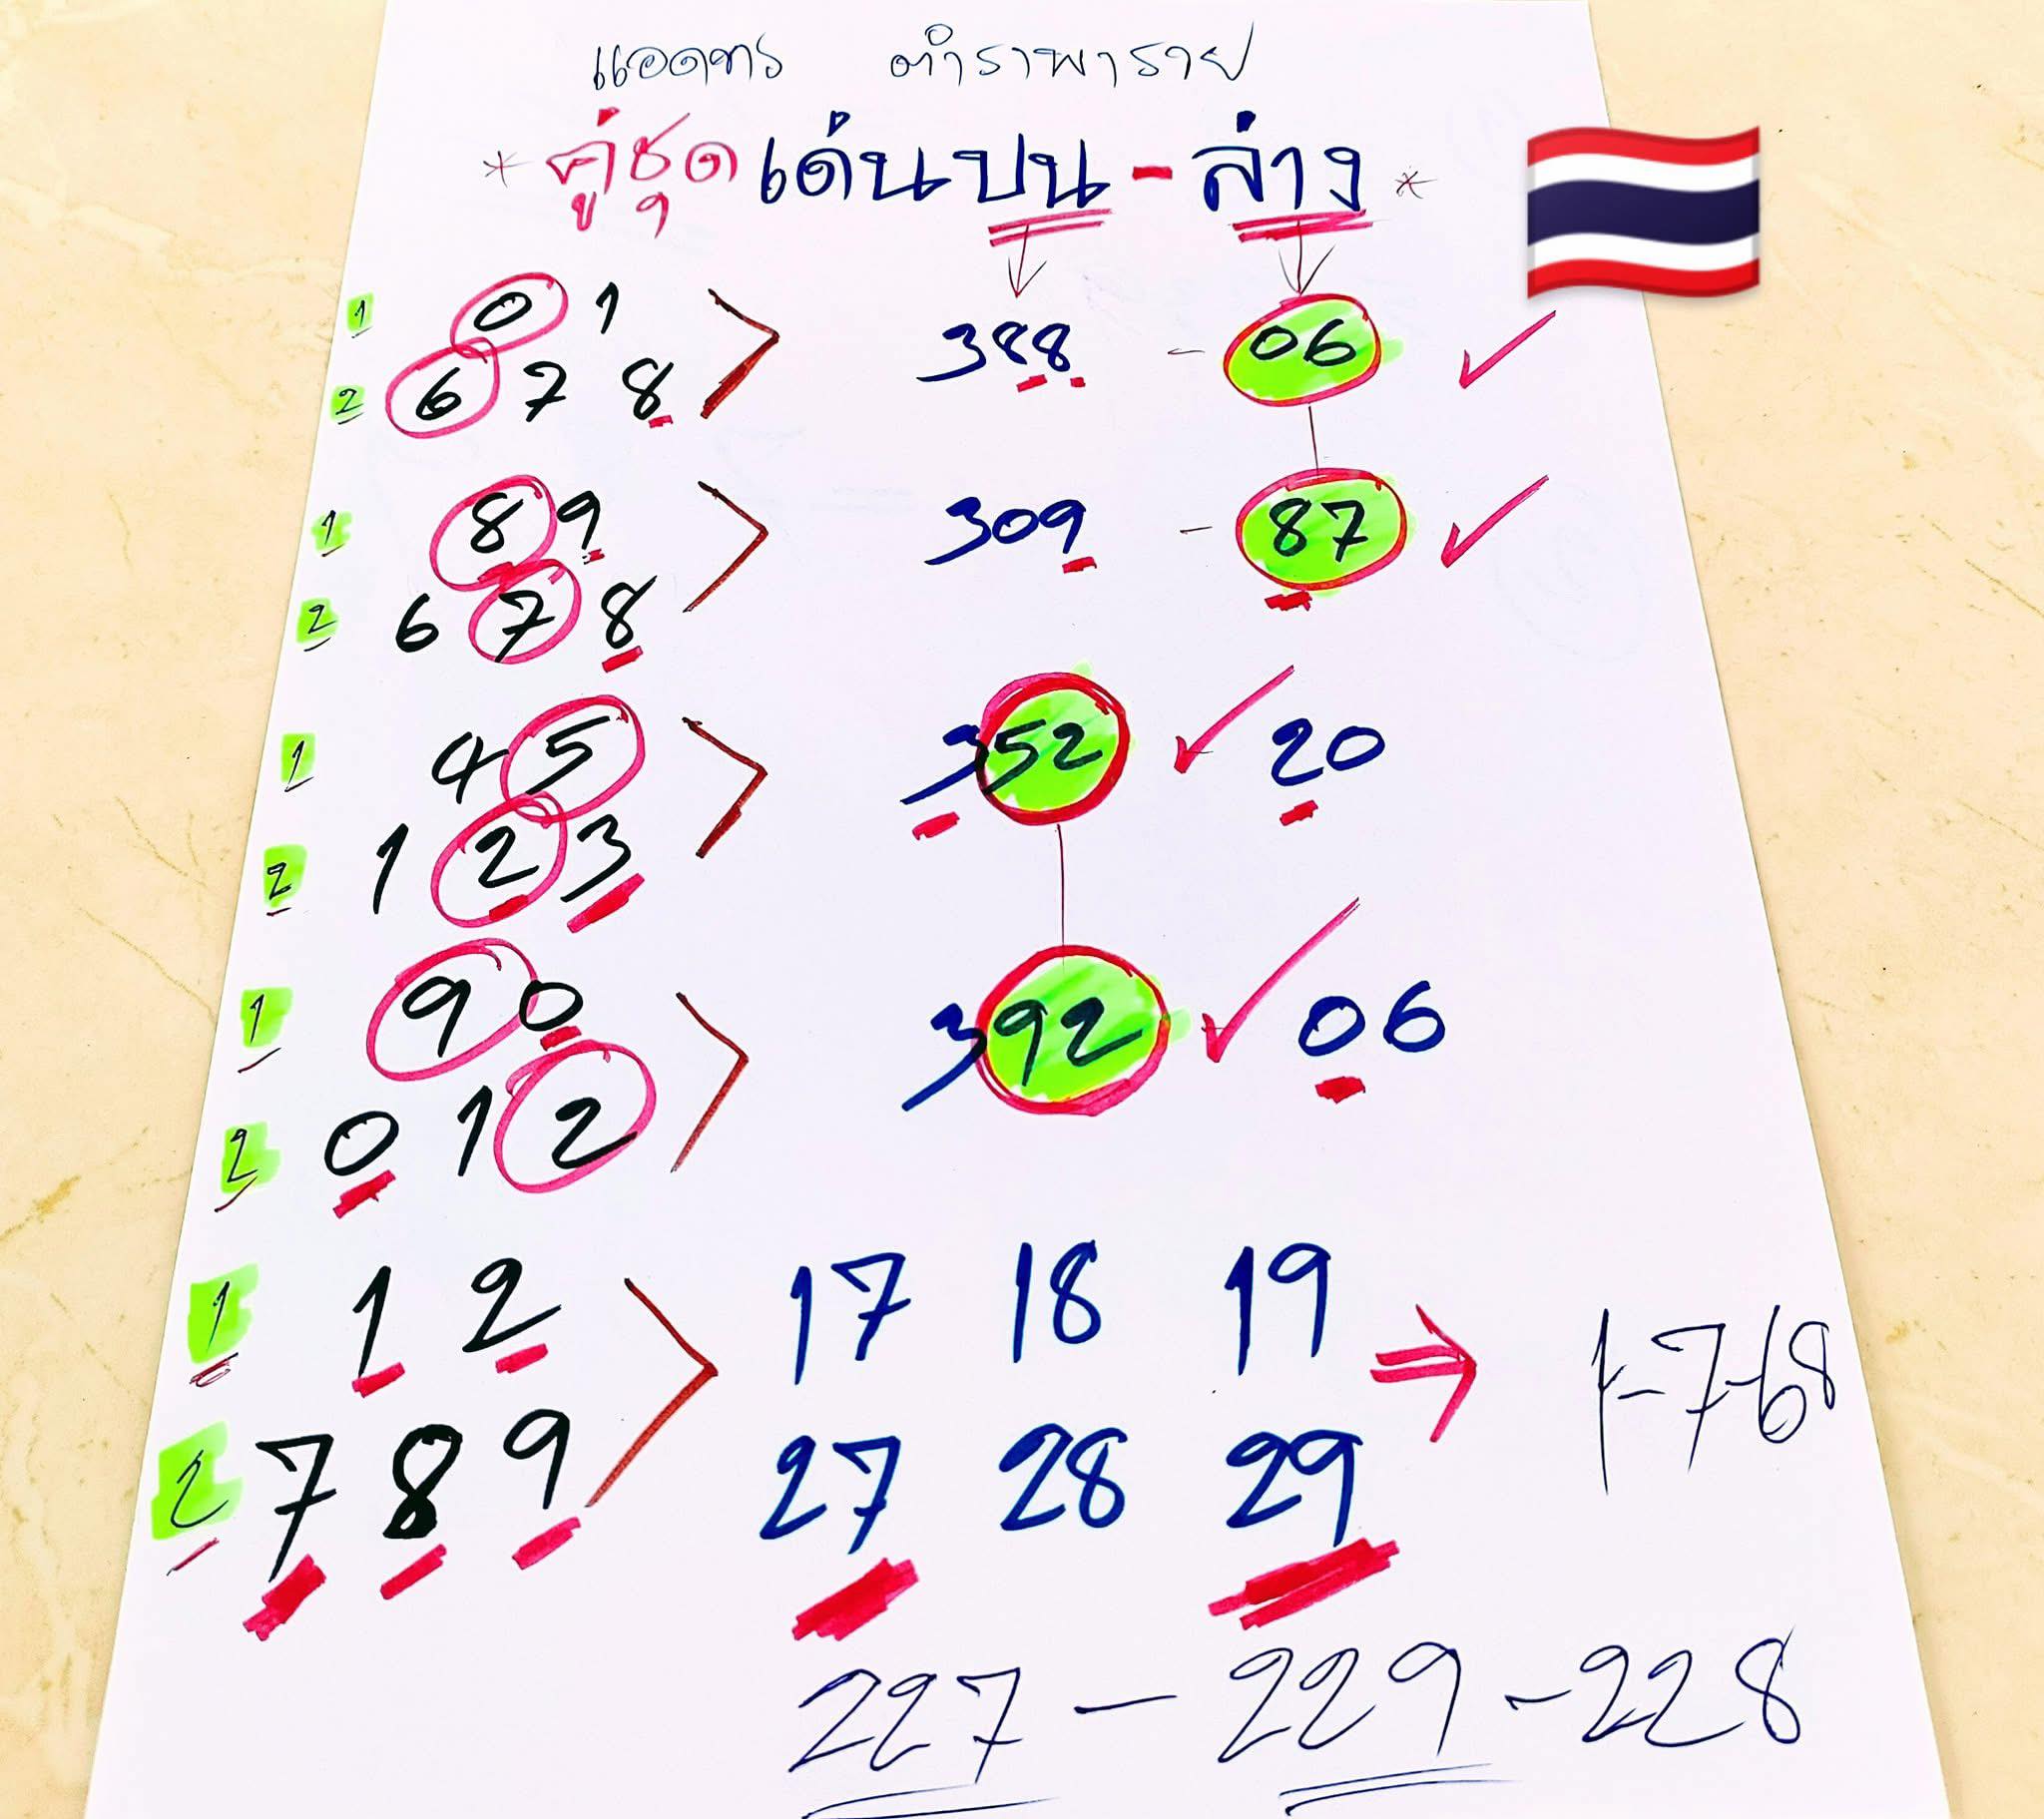 แอดทร ตำราพารวย
* คู่ชุดเด่นบน - ล่าง *
1 0 1 388 - 06
2 6 7 8
1 8 9 309 - 87
2 6 7 8
1 4 5 352 20
2 1 2 3
1 9 0 392 06
2 0 1 2
1 1 2 17 18 19 1-7-68
2 7 8 9 27 28 29
227 - 229 - 228